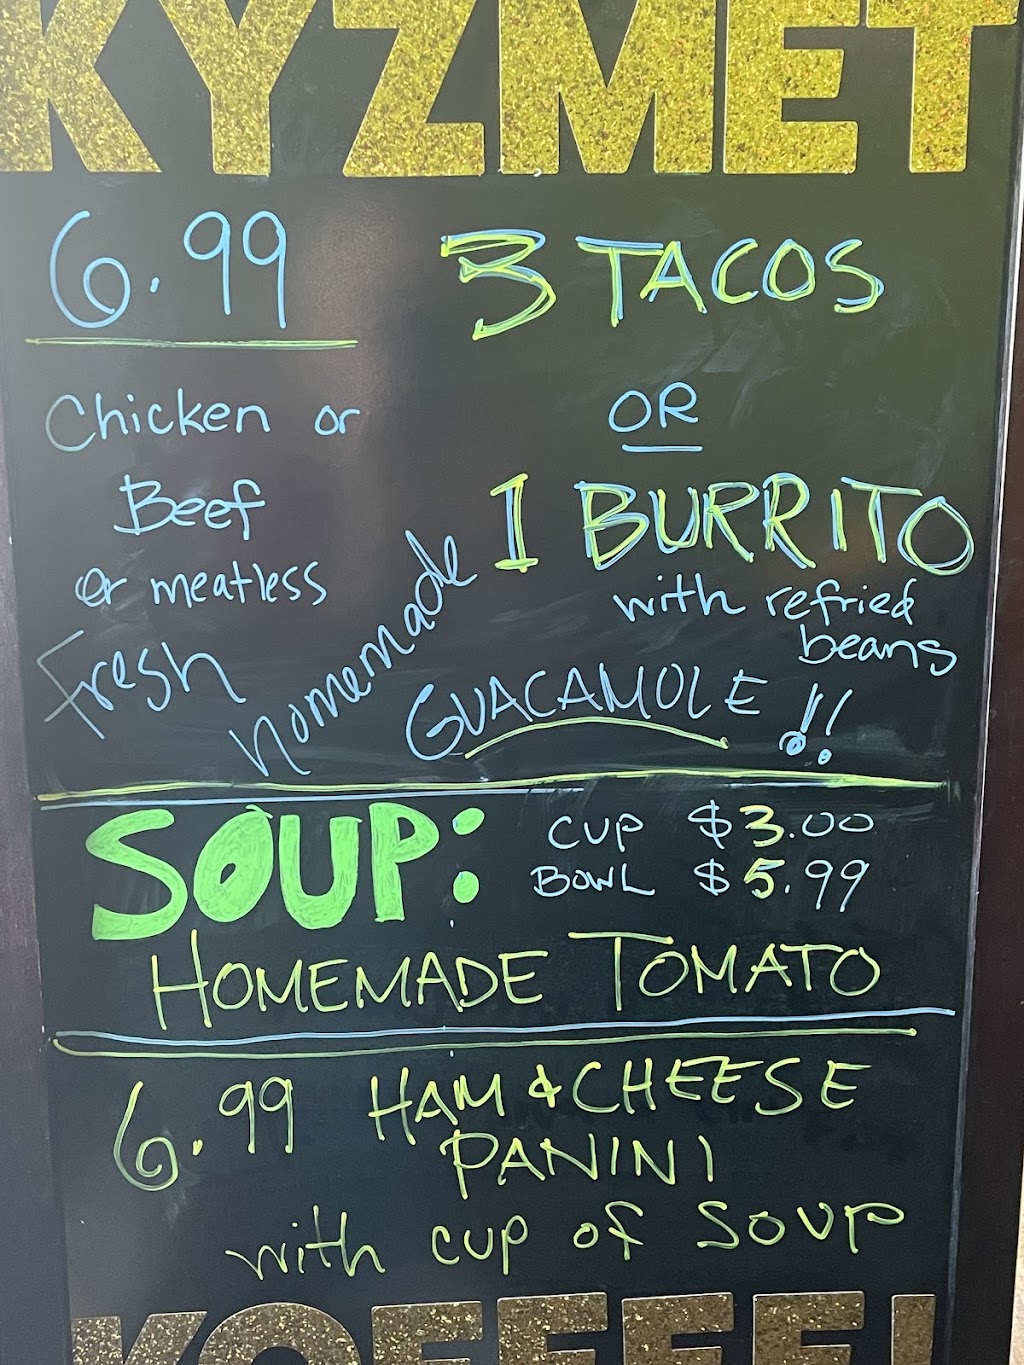 KYZMET
6.99
3 TACOS
Chicken or
Beef
or meatless
OR
1 BURRITO
with refried
beans
Fresh
Homemade
GUACAMOLE !!
SOUP:
CUP $3.00
BOWL $5.99
HOMEMADE TOMATO
6.99 HAM & CHEESE
PANINI
with cup of SOUP
KOFFEE!